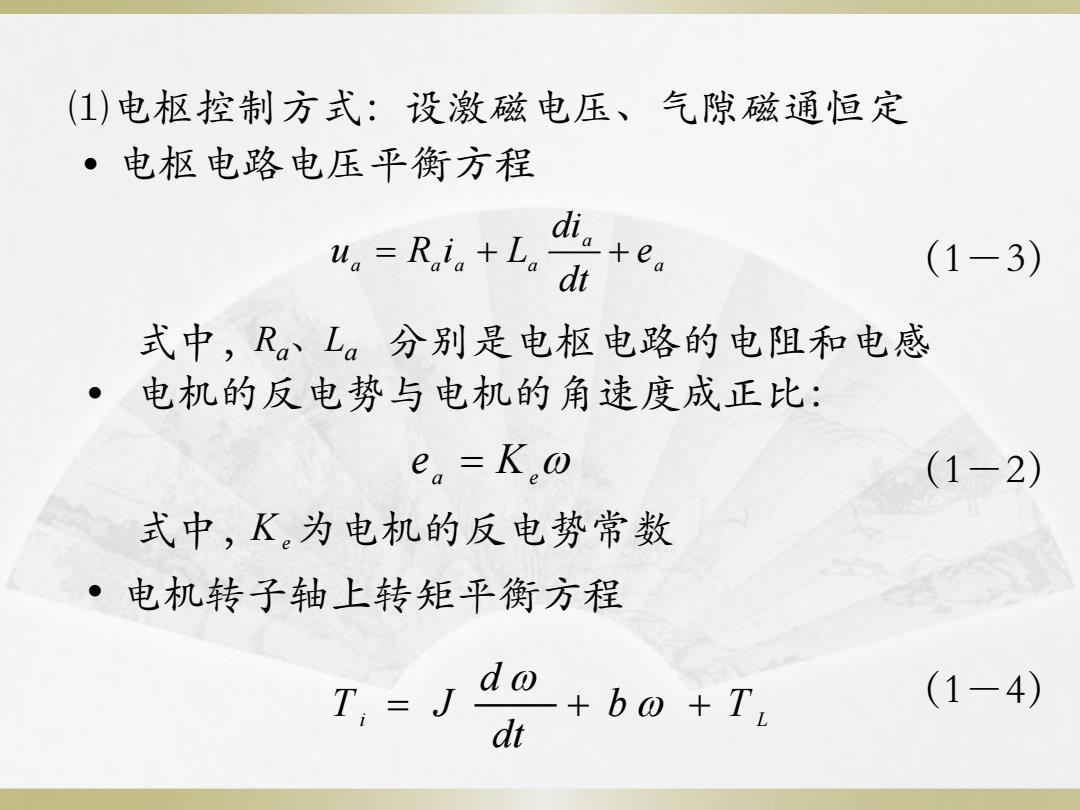 (1)电枢控制方式：设激磁电压、气隙磁通恒定
• 电枢电路电压平衡方程
u_a = R_a i_a + L_a di_a/dt + e_a (1－3)
式中，R_a、L_a 分别是电枢电路的电阻和电感
• 电机的反电势与电机的角速度成正比：
e_a = K_e ω (1－2)
式中，K_e 为电机的反电势常数
• 电机转子轴上转矩平衡方程
T_i = J dω/dt + bω + T_L (1－4)